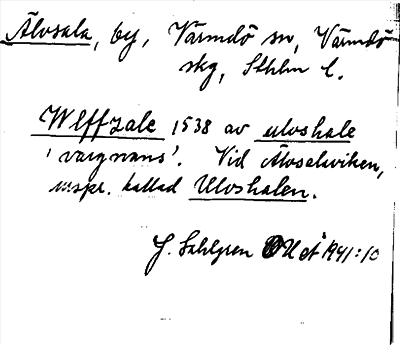 Älvsala, by, Värmdö sn, Värmdö
skg, Sthlm l.
Wlffzale 1538 av ulvshale
'vargsvans'. Vid Älvsalaviken,
urspr. kallad Ulvshalen.
J. Sahlgren OUÅ 1941:10